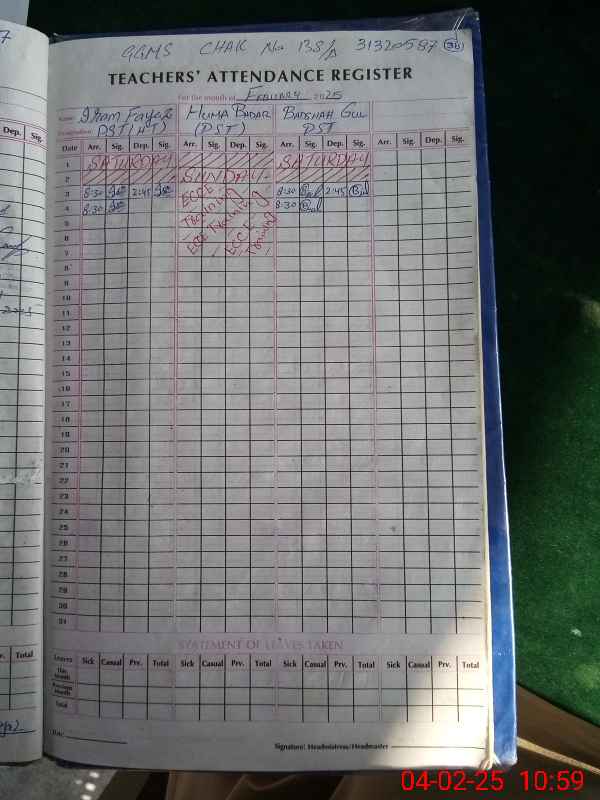 GGMS CHAK No 138/A 31320587
TEACHERS' ATTENDANCE REGISTER
For the month of February 2025
Name HUMA BADAR BADSHAH GUL
Designation PST(HT) (PST) PST
Date Arr. Sig. Dep. Sig. Arr. Sig. Dep. Sig. Arr. Sig. Dep. Sig. Arr. Sig. Dep. Sig.
1 SATURDAY SATURDAY
2 SUNDAY
3 8:30 2:45 ECCE Training 8:30 2:45
4 8:30 ECCE Training 8:30
5 ECCE
6 Training
7
8
9
10
11
12
13
14
15
16
17
18
19
20
21
22
23
24
25
26
27
28
29
30
31
STATEMENT OF LEAVES TAKEN
Leaves Sick Casual Prv. Total Sick Casual Prv. Total Sick Casual Prv. Total Sick Casual Prv. Total
This Month
Previous Month
Total
Date
Signature: Headmistress/Headmaster
Dep. Sig.
Total
04-02-25 10:59